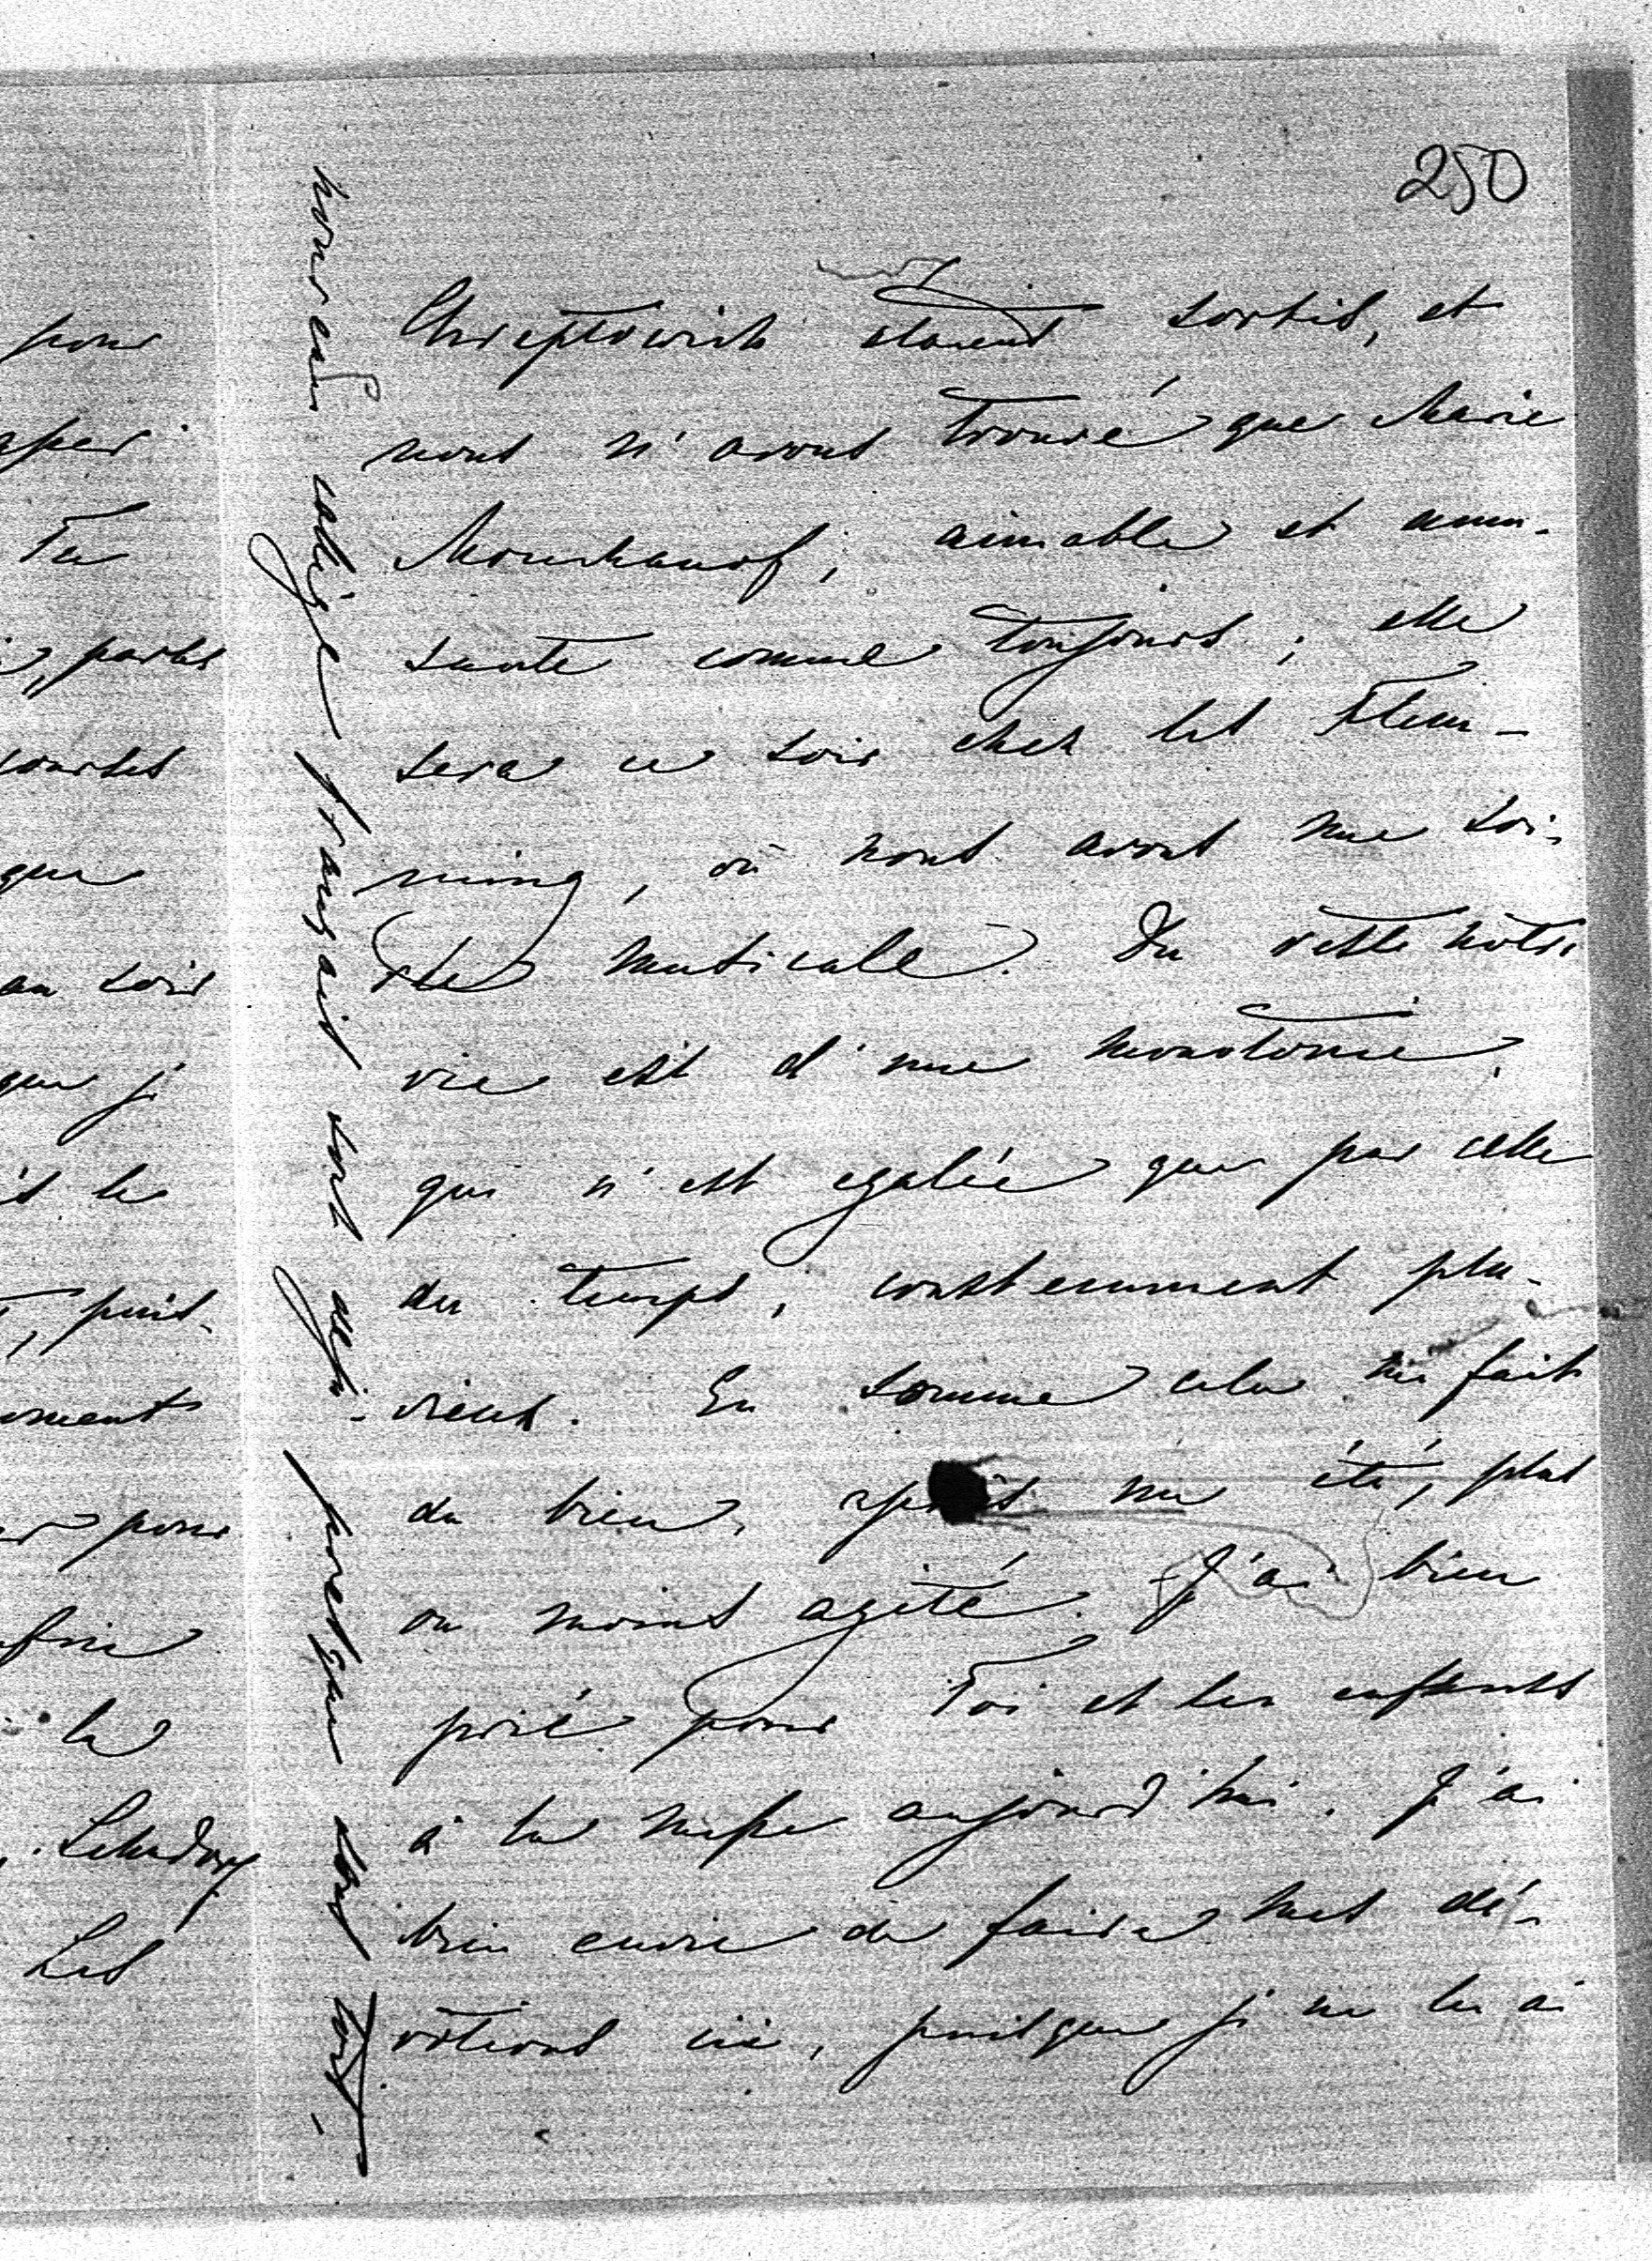 250
Chreptowich étaient sortis, et
nous n'avons trouvé que Marie
Mouchanof, aimable et amu-
sante comme toujours; elle
sera ce soir chez les Flem-
ming, où nous avons une soi-
rée musicale. Du reste notre
vie est d'une monotonie,
qui n'est egalée que par celle
du temps, constemment plu-
vieux. En somme cela me fait
du bien, après un été, plus
ou moins agité. J'ai bien
prié pour Toi et les enfants
à la messe aujourd'hui. J'ai
bien envie de faire mes dé-
votions ici, puisque je ne les ai
nouveau collège français
presque
pour
Tu
partes
courses
que
au soir
que j
le
puis-
pour
la
Lehndorff
Les